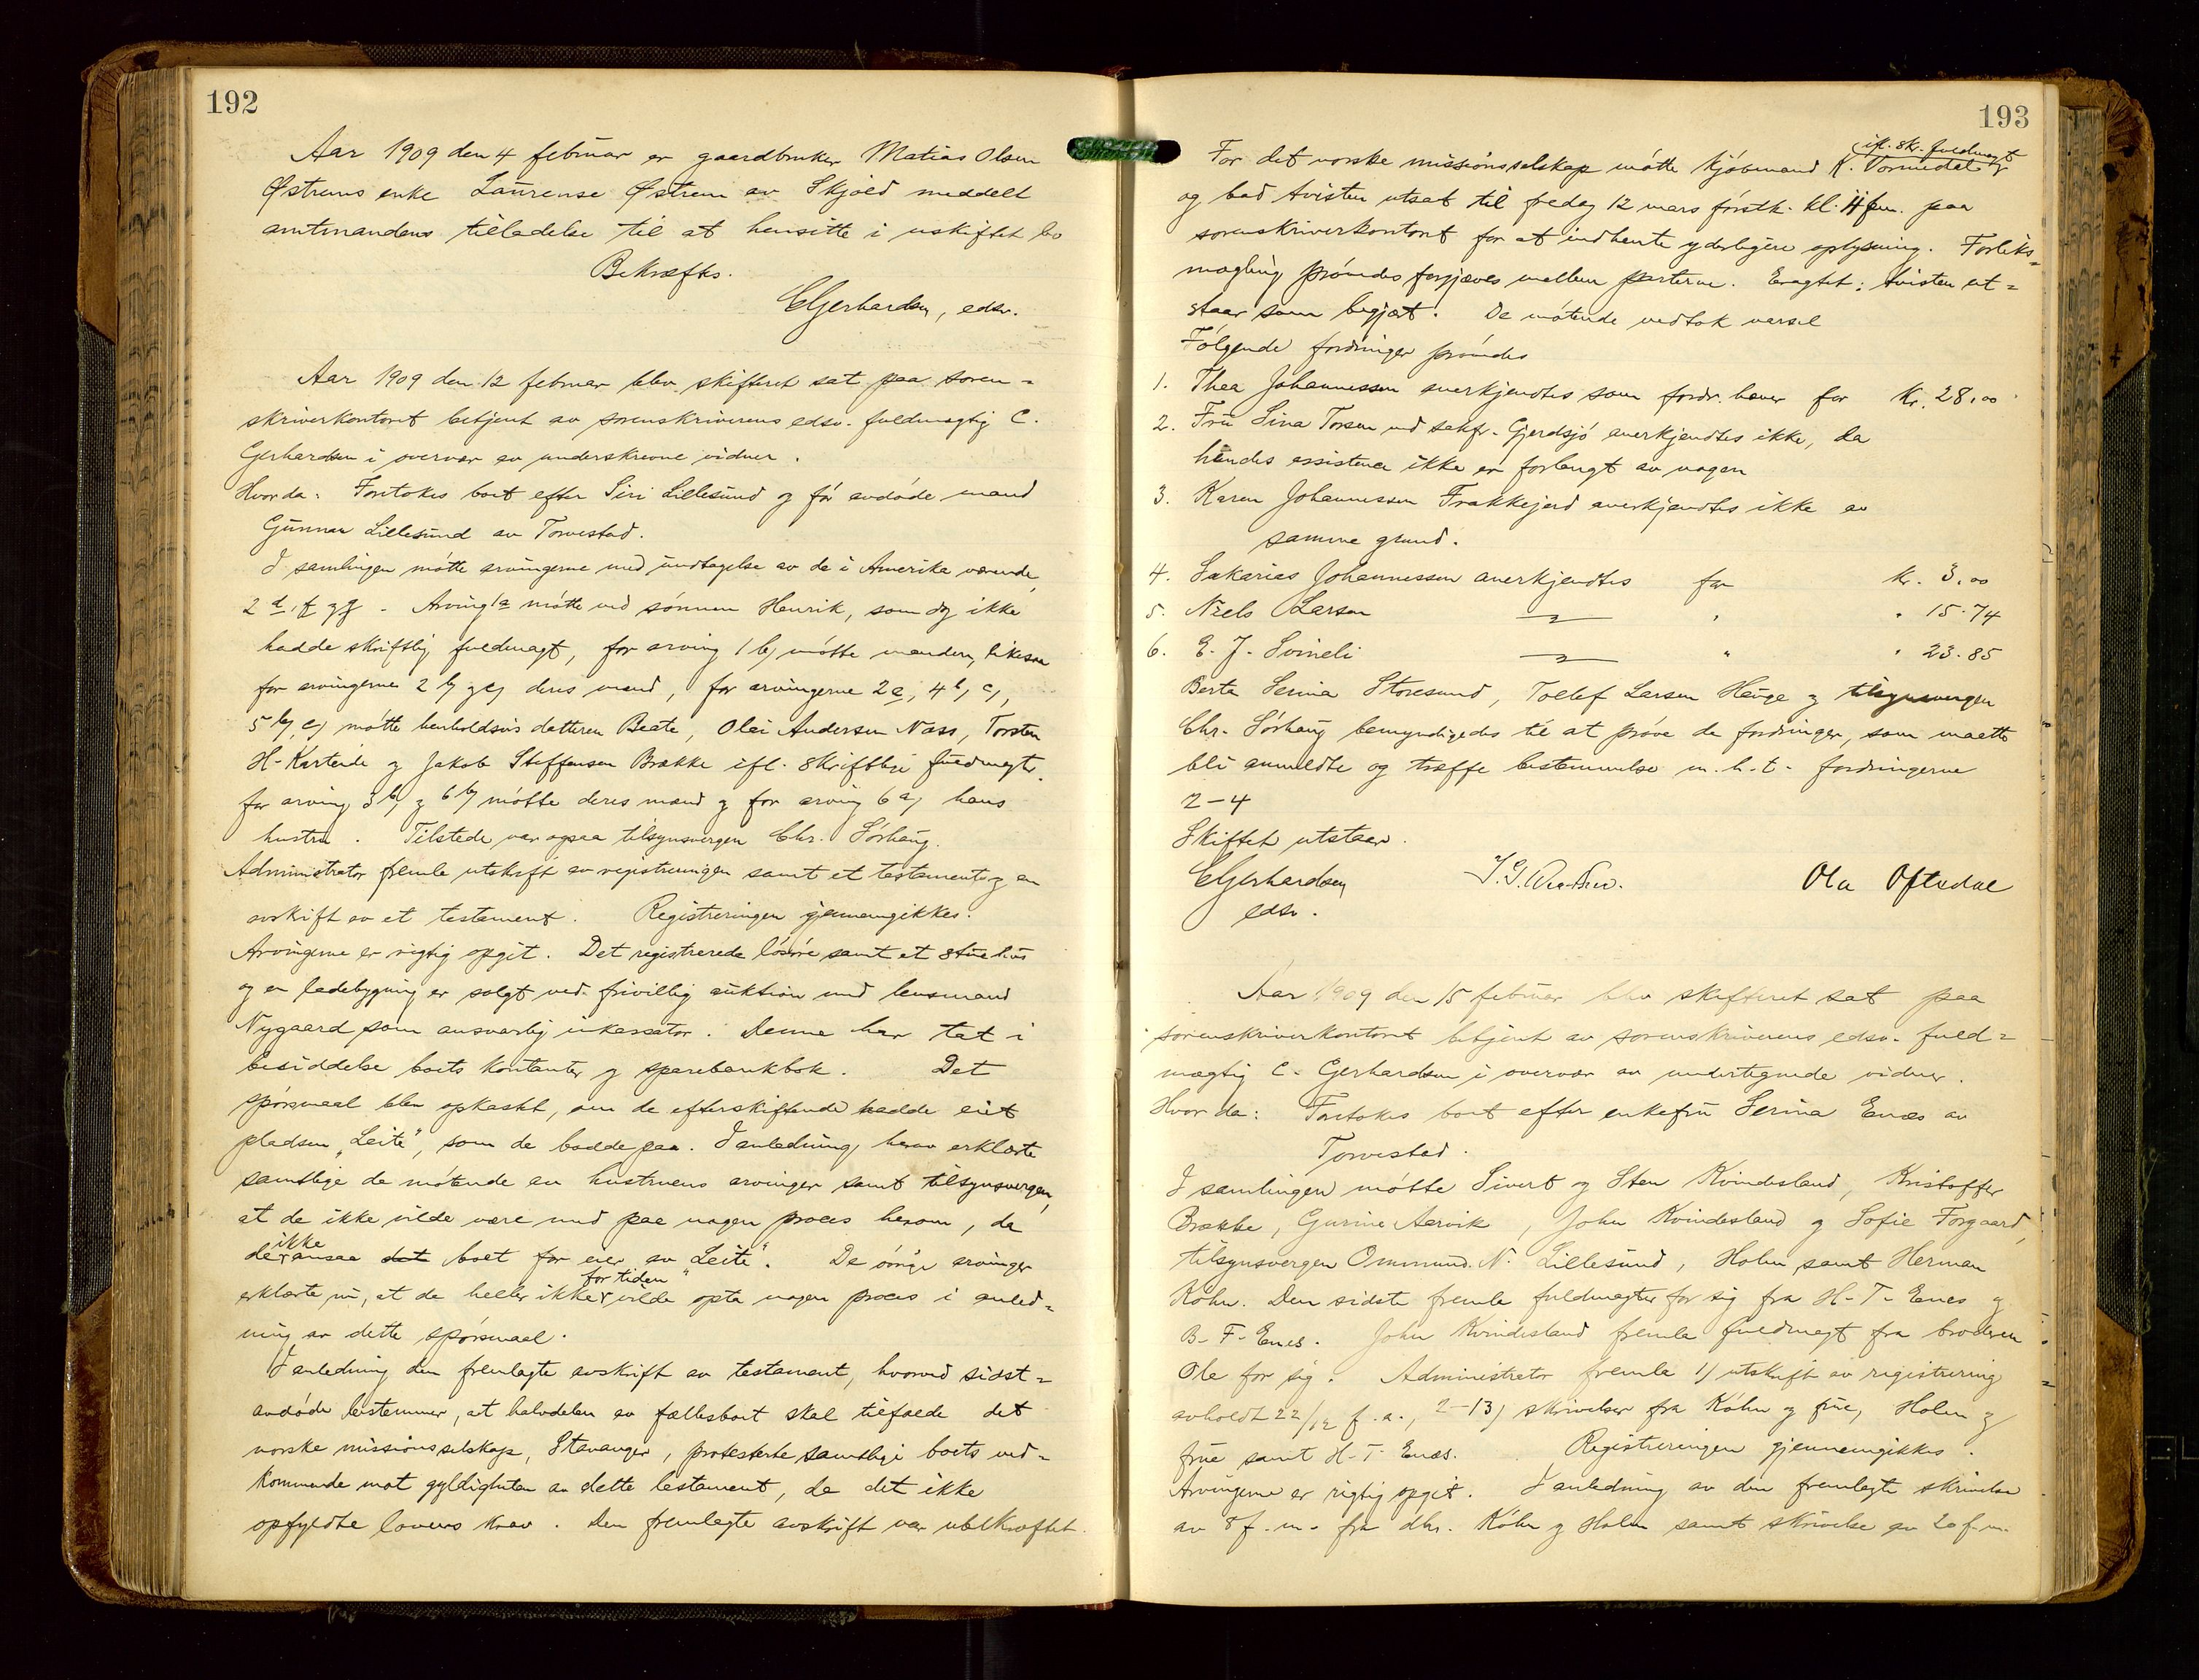 192
Aar 1909 den 4 februar er gaardbruker Matias Olsen
Østrems enke Laurense Østrem av Skjold meddelt
amtmandens tilladelse til at hensitte i uskiftet bo
Bekræftes.
CGerhardsen, edsv.
Aar 1909 den 12 februar blev skifteret sat paa soren-
skriverkontoret betjent av sorenskriverens edsv. fuldmægtig C.
Gerhardsen i overvær av underskrevne vidner.
Hvor da: Foretokes boet efter Siri Lillesund og før avdøde mand
Gunnar Lillesund av Torvestad.
I samlingen møtte arvingerne med undtagelse av de i Amerika værende
2 d, f og g. Arving 1a møtte ved sønnen Henrik, som dog ikke
hadde skriftlig fuldmagt, for arving 1 b) møtte manden, likesaa
for arvingerne 2 b) og c) deres mænd, for arvingerne 2a, 4 b, c),
5 b), c) møtte henholdsvis datteren Beate, Olai Andersen Næss, Torsten
H. Karteide og Jakob Steffensen Brække ifl. skriftlige fuldmagter.
for arving 3 b) og 6 b) møtte deres mænd og for arving 6 a) hans
hustru. Tilstede var ogsaa tilsynsvergen Chr. Sørhaug.
Administrator fremla utskrift av registreringen samt et testament og en
avskrift av et testament. Registreringen gjennemgikkes.
Arvingerne er rigtig opgit. Det registrerede løsøre samt et stuehus
og en ladebygning er solgt ved frivillig auktion med lensmand
Nygaard som ansvarlig inkassator. Denne har tat i
besiddelse boets kontanter og sparebankbok. Det
spørsmaal blev opkastet, om de efterskiftende hadde eiet
pladsen "Leite", som de bodde paa. I anledning herav erklærte
samtlige de møtende av hustruens arvinger samt tilsynsvergen,
at de ikke vilde være med paa nogen proces herom, da
de ikke ansaa det boet for eier av "Leite". De øvrige arvinger
erklærte nu, at de heller ikke for tiden vilde opta nogen proces i anled-
ning av dette spørsmaal.
I anledning den fremlagte avskrift av testament, hvorved sidst-
avdøde bestemmer, at halvdelen av fællesboet skal tilfalde det
norske missionsselskap, Stavanger, protesterte samtlige boets ved-
kommende mot gyldigheten av dette testament, da det ikke
opfyldte lovens krav. Den fremlagte avskrift var ubekræftet.
193
For det norske missionsselskap møtte kjøbmand K. Vormedal ifl. skr. fuldmagt
og bad tvisten utsat til fredag 12 mars førstk. kl. 11 fm. paa
sorenskriverkontoret for at indhente yderligere oplysning. Forliks-
mægling prøvedes forgjæves mellem parterne. Eragtet: tvisten ut-
staar som begjært. De møtende vedtok varsel
Følgende fordringer prøvedes
1. Thea Johannessen anerkjendtes som fordr. haver for Kr. 28.00
2. Fru Sina Torsen ved sakfr. Gjerdsjø anerkjendtes ikke, da
hendes assistence ikke er forlangt av nogen
3. Karen Johannessen Frakkejord anerkjendtes ikke av
samme grund.
4. Sakarias Johannessen anerkjendtes for kr. 3.00
5. Niels Larsen — " " 15.74
6. E. J. Svineli — " " 23.85
Berta Serina Storesund, Tollef Larsen Hauge og tilsynsvergen
Chr. Sørhaug bemyndigedes til at prøve de fordringer, som maatte
bli anmeldte og træffe bestemmelse m.h.t. fordringerne
2-4
Skiftet utstaar.
CGerhardsen
edsv.
Ola Oftedal
Aar 1909 den 15 februar blev skifteret sat paa
sorenskriverkontoret betjent av sorenskriverens edsv. fuld-
mægtig C. Gerhardsen i overvær av undertegnede vidner.
Hvor da: Foretokes boet efter enkefru Serina Enæs av
Torvestad.
I samlingen møtte Sivert og Sten Kvindesland, Kristoffer
Brække, Gurine Aarvik, John Kvindesland og Sofie Forgaard,
tilsynsvergen Ommund N. Lillesund, Holm samt Herman
Køhn. Den sidste fremla fuldmagter for sig fra H. T. Enæs og
B. F. Enæs. John Kvindesland fremla fuldmagt fra broderen
Ole for sig. Administrator fremla 1) utskrift av registrering
avholdt 22/12 f.a., 2-13) skrivelser fra Køhn og frue, Holm og
frue samt H. T. Enæs. Registreringen gjennemgikkes.
Arvingerne er rigtig opgit. I anledning av den fremlagte skrivelse
av 8 f.m. fra dhr. Køhn og Holm samt skrivelse av 20 f.m.